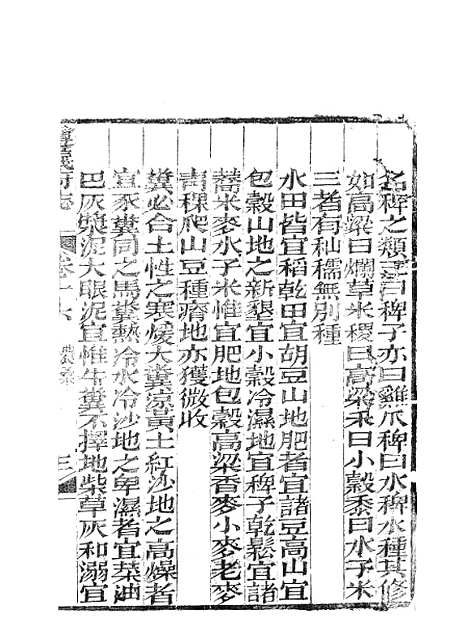 名稗之類𥻦曰稗子亦曰雞爪稗曰水稗水種其修
如高粱曰爛草米稷曰高粱禾曰小穀黍曰水子米
三者有秈糯無別種
水田皆宜稻乾田宜胡豆山地肥者宜諸豆高山宜
包穀山地之新墾宜小穀冷濕地宜稗子乾鬆宜諸
蕎米麥水子米惟宜肥地包穀高粱香麥小麥老麥
靑稞爬山豆種瘠地亦獲微收
糞必合土性之寒煖大糞涼黃土紅沙地之高燥者
宜豕糞同之馬糞熱冷水冷沙地之卑濕者宜菜油
巴灰漿泥大眼泥宜惟牛糞不擇地柴草灰和溺宜
遵義府志 卷十六 農桑 三